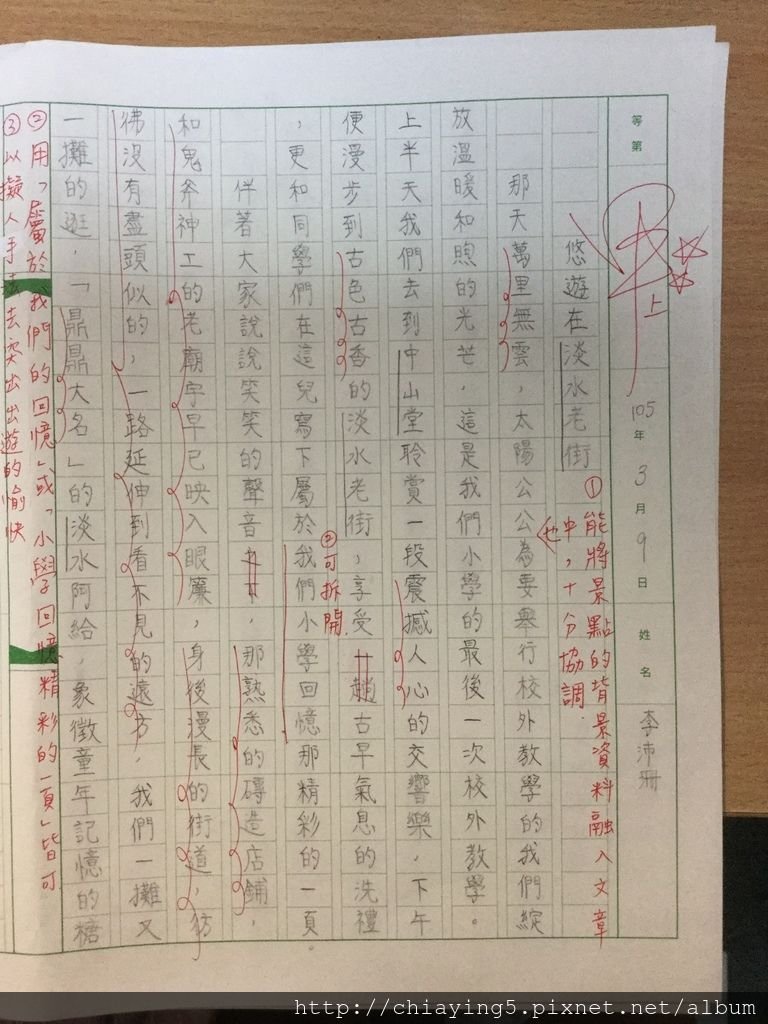 等第
甲上
105年3月9日
姓名
李沛珊
悠遊在淡水老街
那天萬里無雲，太陽公公為要舉行校外教學的我們綻
放溫暖和煦的光芒，這是我們小學的最後一次校外教學。
上半天我們去到中山堂聆賞一段震撼人心的交響樂，下午
便漫步到古色古香的淡水老街，享受一趟古早氣息的洗禮
，更和同學們在這兒寫下屬於我們小學回憶那精彩的一頁。
伴著大家說說笑笑的聲音，那熟悉的磚造店鋪，
和鬼斧神工的老廟宇早已映入眼簾，身後漫長的街道，彷
彿沒有盡頭似的，一路延伸到看不見的遠方，我們一攤又
一攤的逛，「鼎鼎大名」的淡水阿給，象徵童年記憶的糖
①能將景點的背景資料融入文章
中，十分協調
也
②可拆開
②用「屬於我們的回憶」或「小學回憶精彩的一頁」皆可
③以擬人手法去突出出遊的愉快
http://chiaying5.pixnet.net/album